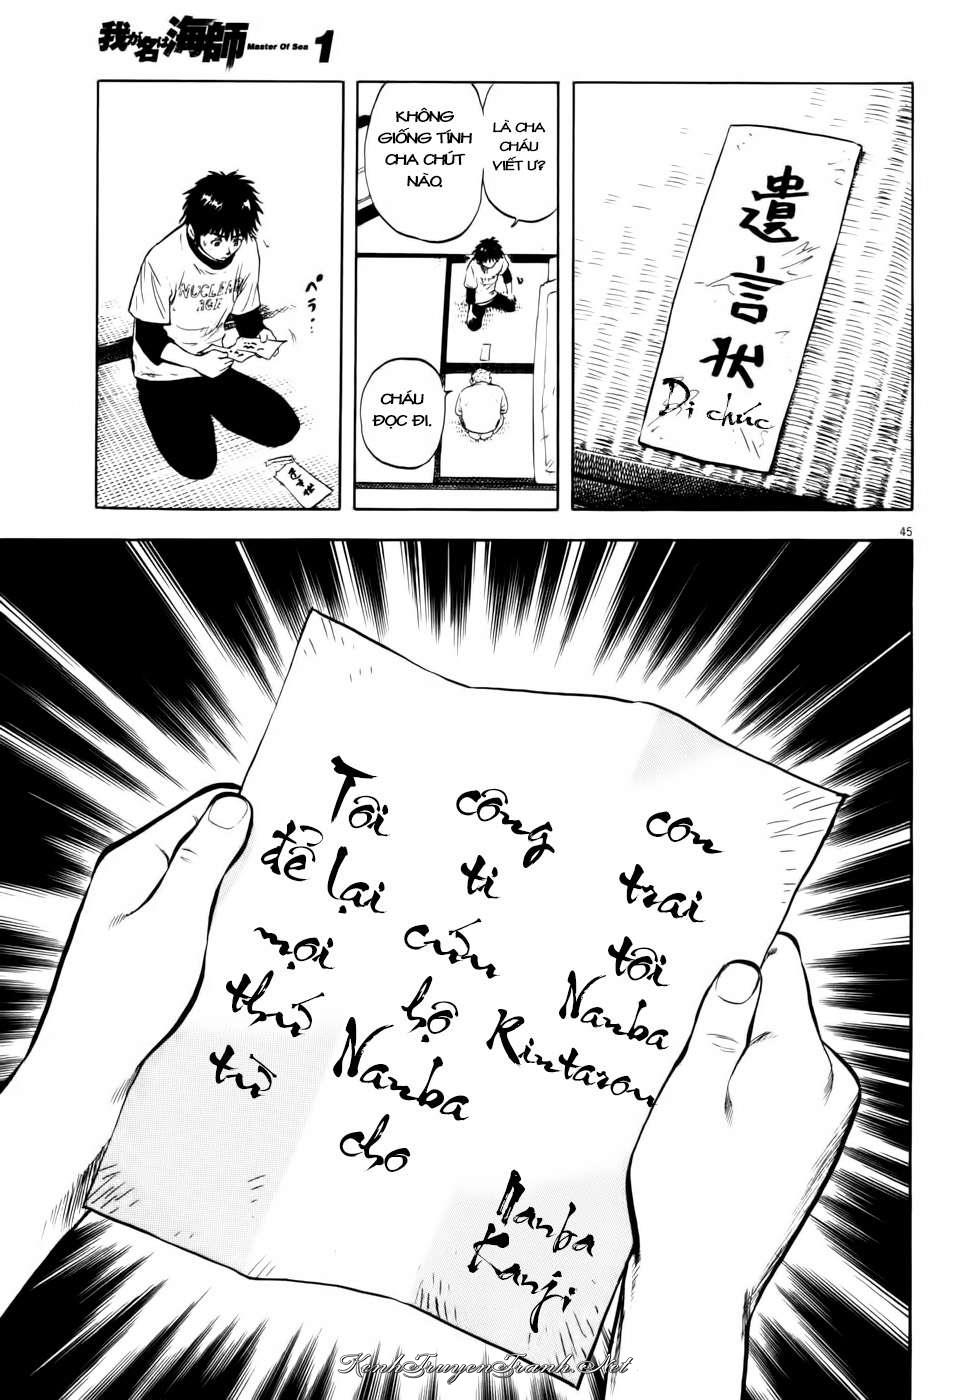 我が名は海師 Master Of Sea 1
遺言状
Di chúc
LÀ CHA
CHÁU
VIẾT Ư?
KHÔNG
GIỐNG TÍNH
CHA CHÚT
NÀO.
CHÁU
ĐỌC ĐI.
ペラ…
NUCLEAR
AGE
遺言状
45
Tôi
để lại
mọi
thứ
từ
công
ti
cứu
hộ
Nanba
cho
con
trai
tôi
Nanba
Rintarou
Nanba
Kanji
KenhTruyenTranh.Net